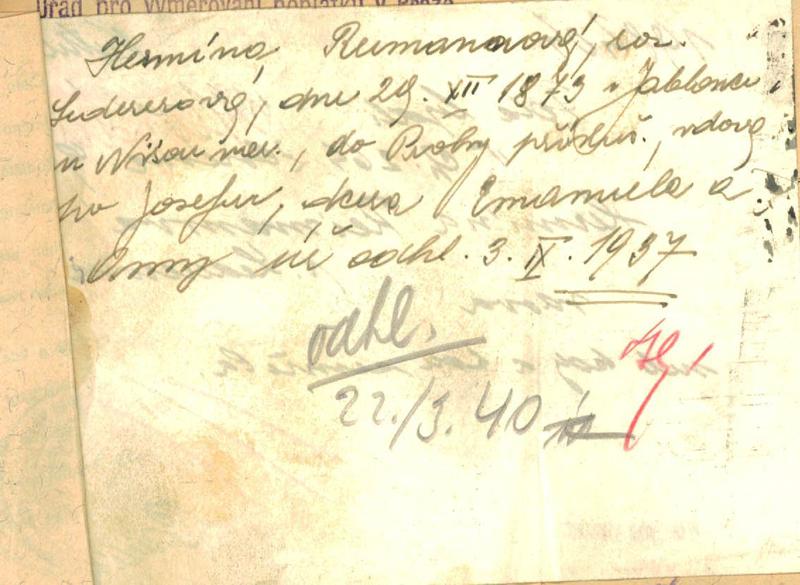 Úřad pro vyměřování poplatků v Praze
Hermína Rumanová, roz.
dne 29. XII 1873 v Jablonci
n Nisou nar., do Prahy přísluš., vdova
po Josefu, dcera Emanuela a
Anny odhl. 3. IX. 1937
odhl.
22./3. 40